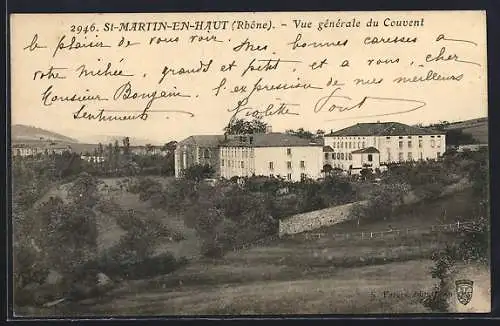 2946. St-MARTIN-EN-HAUT (Rhône). - Vue générale du Couvent
le plaisir de vous voir. Mes bonnes caresses a
votre Michée, grands et petit, et a vous, cher
Monsieur Bongain, l'expression de nos meilleurs
sentiments Violette
S. Farges,